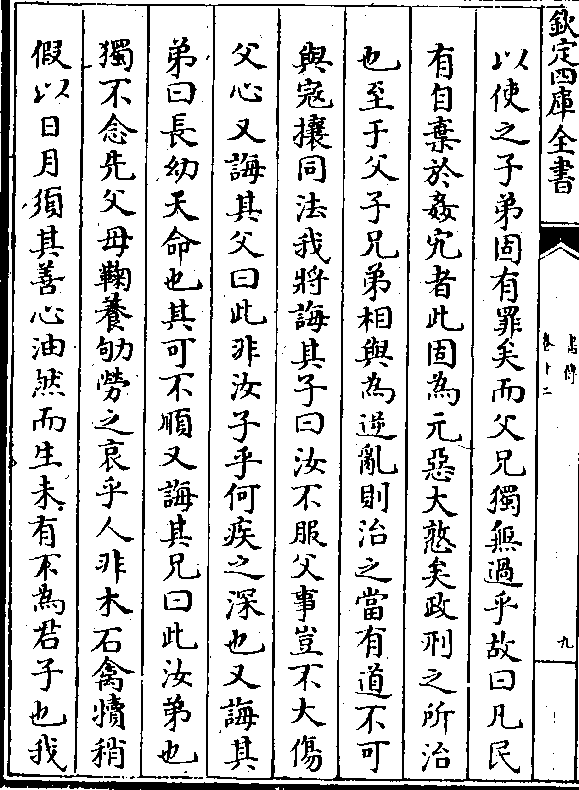 欽定四庫全書
書傳
卷十二
九
以使之子弟固有罪矣而父兄獨無過乎故曰凡民
有自棄於姦宄者此固為元惡大憝矣政刑之所治
也至于父子兄弟相與為逆亂則治之當有道不可
與寇攘同法我將誨其子曰汝不服父事豈不大傷
父心又誨其父曰此非汝子乎何疾之深也又誨其
弟曰長幼天命也其可不順又誨其兄曰此汝弟也
獨不念先父母鞠養劬勞之哀乎人非木石禽犢稍
假以日月須其善心油然而生未有不為君子也我